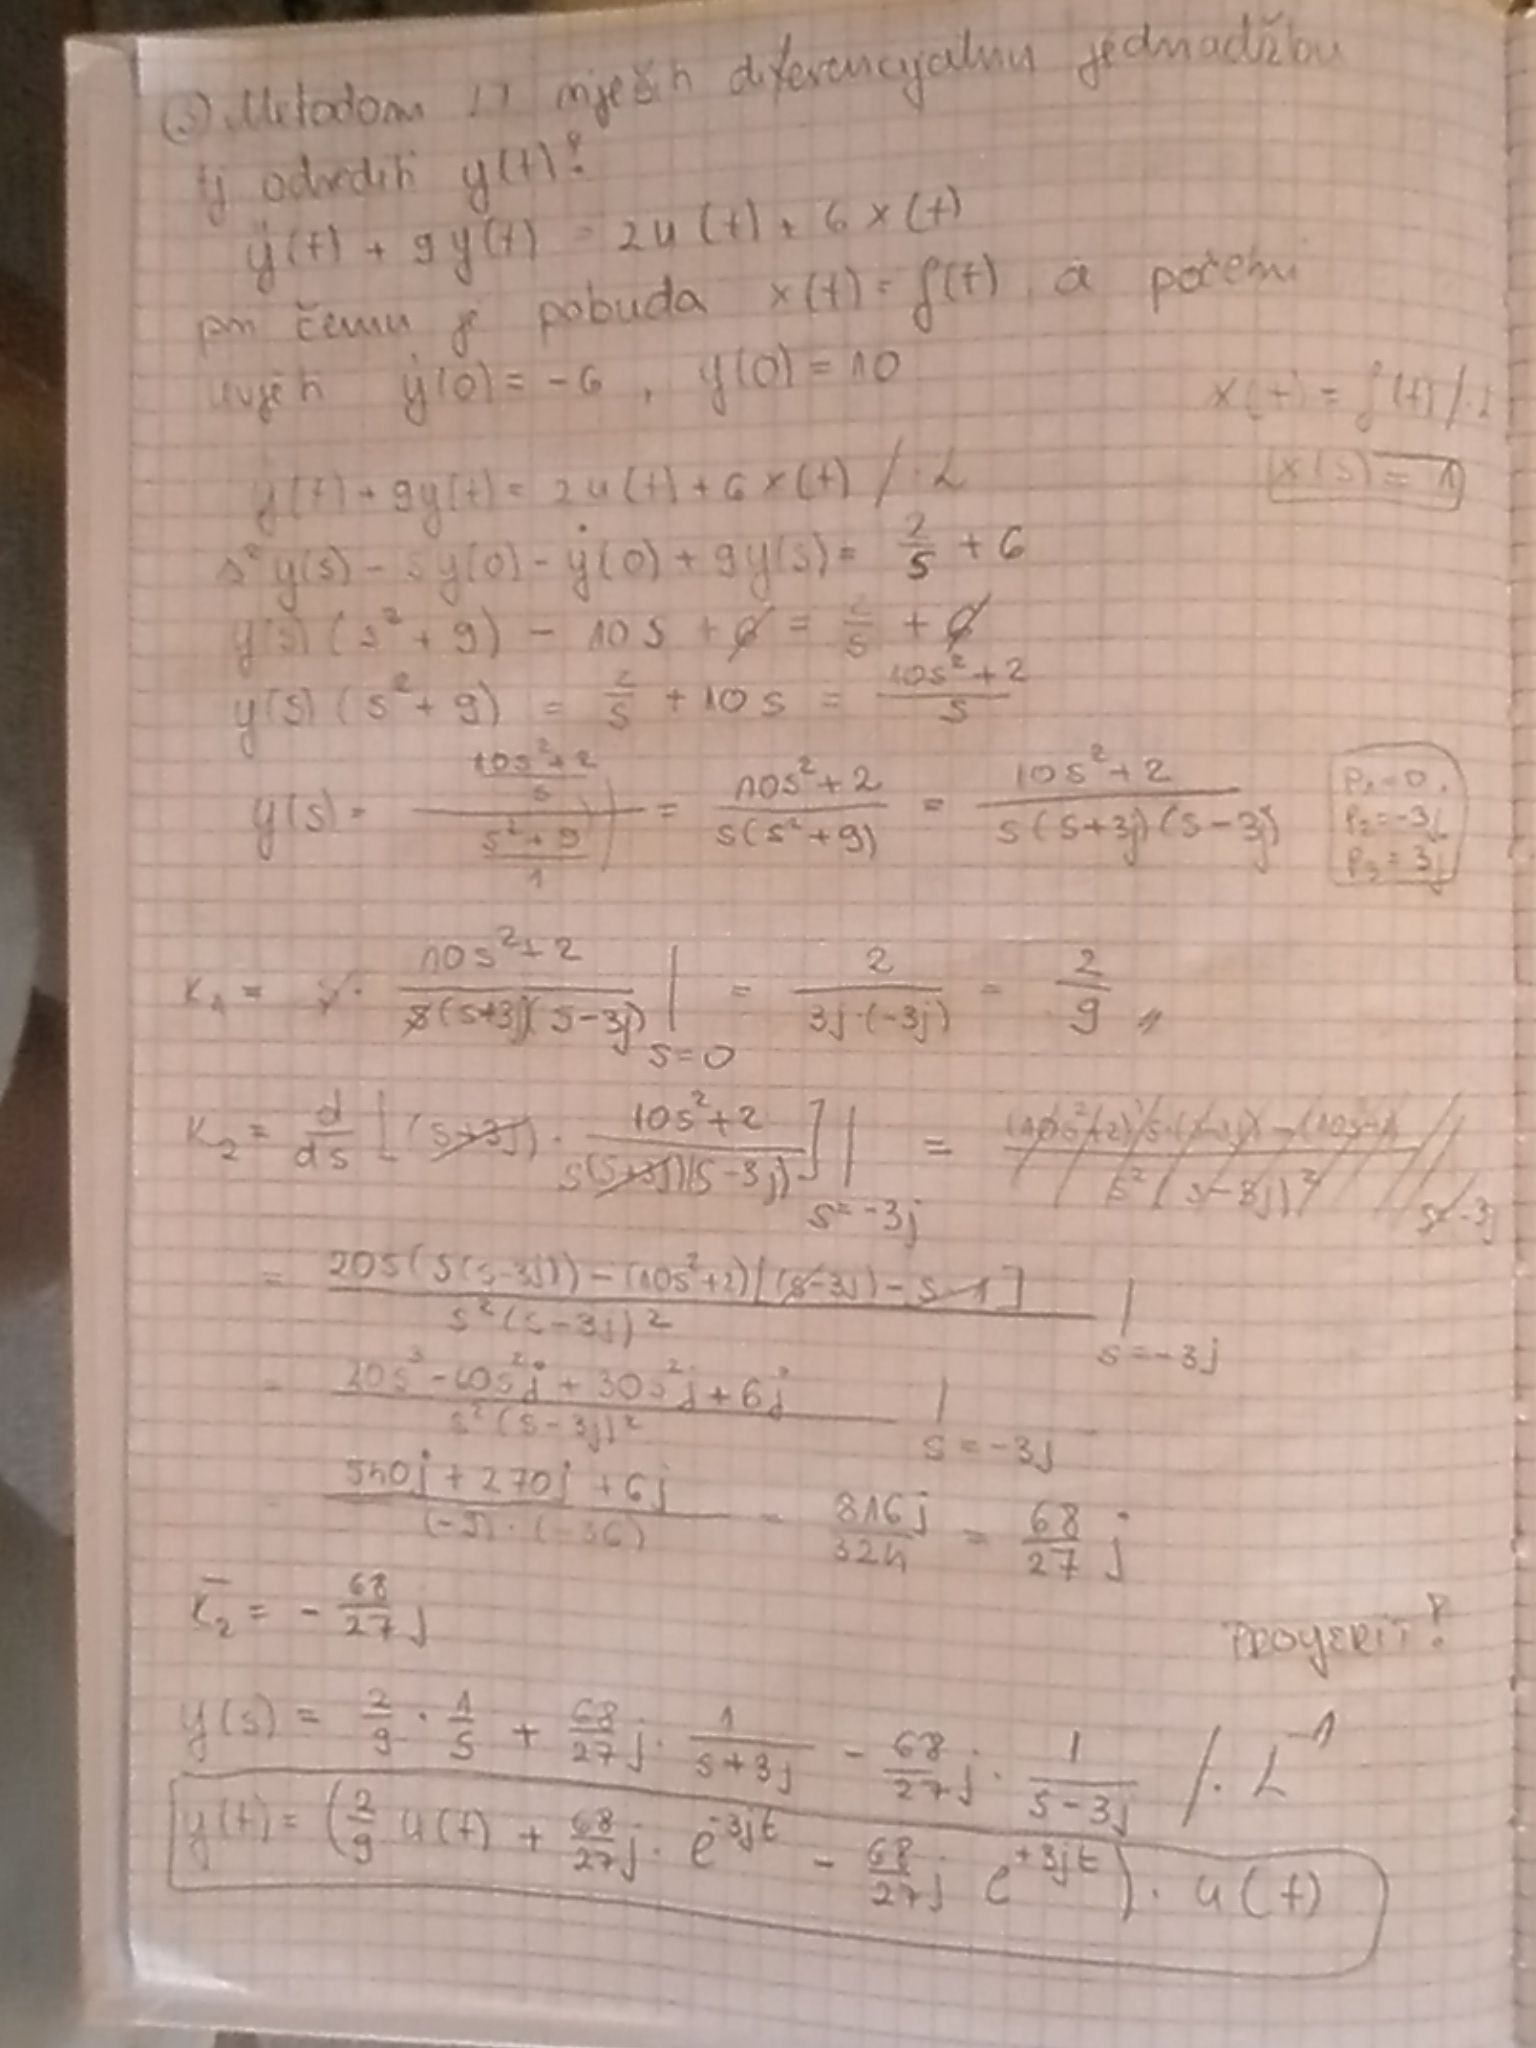 ③ Metodom LT riješiti diferencijalnu jednadžbu
tj odrediti y(t)!
ÿ(t) + 9y(t) = 2u(t) + 6x(t)
pri čemu je pobuda x(t) = δ(t), a početni
uvjeti ẏ(0) = -6, y(0) = 10
x(t) = δ(t) /·L
ÿ(t) + 9y(t) = 2u(t) + 6x(t) /·L
x(s) = 1
s²y(s) - sy(0) - ẏ(0) + 9y(s) = 2/s + 6
y(s)(s²+9) - 10s + 6 = 2/s + 6
y(s)(s²+9) = 2/s + 10s = (10s²+2)/s
y(s) = ((10s²+2)/s)/((s²+9)/1) = (10s²+2)/(s(s²+9)) = (10s²+2)/(s(s+3j)(s-3j))
p₁=0,
p₂=-3j
p₃=3j
K₁ = s · (10s²+2)/(s(s+3j)(s-3j)) | s=0 = 2/(3j·(-3j)) = 2/9 //
K₂ = d/ds [(s+3j) · (10s²+2)/(s(s+3j)(s-3j))] | s=-3j =
= (20s(s(s-3j)) - (10s²+2)[(s-3j) - s·1])/(s²(s-3j)²) | s=-3j
= (20s³ - 60s²j + 30s²j + 6j)/(s²(s-3j)²) | s=-3j
= (540j + 270j + 6j)/((-9)·(-36)) = 816j/324 = 68/27 j
K̄₂ = -68/27 j
PROVJERIT!
y(s) = 2/9 · 1/s + 68/27 j · 1/(s+3j) - 68/27 j · 1/(s-3j) /·L⁻¹
y(t) = (2/9 u(t) + 68/27 j · e^(-3jt) - 68/27 j e^(+3jt)) · u(t)